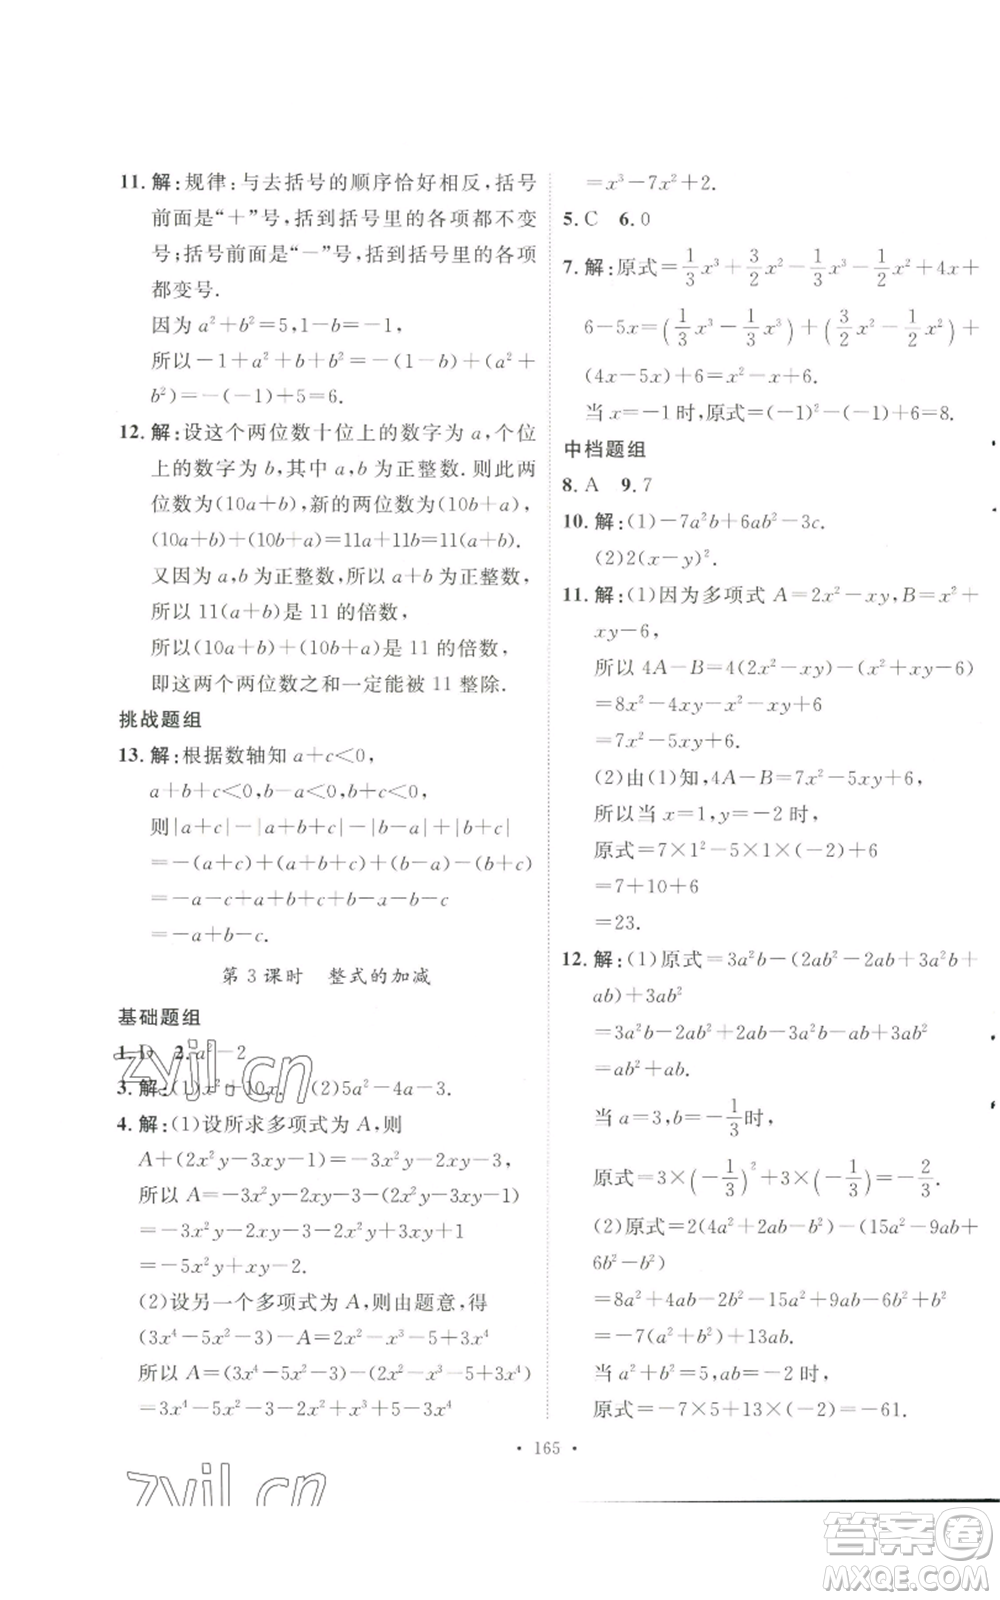 11. 解:规律:与去括号的顺序恰好相反,括号
前面是“+”号,括到括号里的各项都不变
号;括号前面是“-”号,括到括号里的各项
都变号.
因为 a²+b²=5,1-b=-1,
所以-1+a²+b+b²=-(1-b)+(a²+
b²)=-(-1)+5=6.
12. 解:设这个两位数十位上的数字为 a,个位
上的数字为 b,其中 a,b 为正整数. 则此两
位数为(10a+b),新的两位数为(10b+a),
(10a+b)+(10b+a)=11a+11b=11(a+b).
又因为 a,b 为正整数,所以 a+b 为正整数,
所以 11(a+b)是 11 的倍数,
所以(10a+b)+(10b+a)是 11 的倍数,
即这两个两位数之和一定能被 11 整除.
挑战题组
13. 解:根据数轴知 a+c<0,
a+b+c<0,a-b<0,b+c<0,
则|a+c|-|a+b+c|-|a-b|+|b+c|
=-(a+c)+(a+b+c)+(b-a)-(b+c)
=-a-c+a+b+c+b-a-b-c
=-a+b-c.
第 3 课时 整式的加减
基础题组
1. D 2. a²-2
3. 解:(1)x²+10x. (2)5a²-4a-3.
4. 解:(1)设所求多项式为 A,则
A+(2x²y-3xy-1)=-3x²y-2xy-3,
所以 A=-3x²y-2xy-3-(2x²y-3xy-1)
=-3x²y-2xy-3-2x²y+3xy+1
=-5x²y+xy-2.
(2)设另一个多项式为 A,则由题意,得
(3x⁴-5x²-3)-A=-2x²-x³-5+3x⁴
所以 A=(3x⁴-5x²-3)-(-2x²-x³-5+3x⁴)
=3x⁴-5x²-3+2x²+x³+5-3x⁴
=x³-7x²+2.
5. C 6. 0
7. 解:原式=1/3x³+3/2x²-1/3x³-1/2x²+4x+
6-5x=(1/3x³-1/3x³)+(3/2x²-1/2x²)+
(4x-5x)+6=x²-x+6.
当 x=-1 时,原式=(-1)²-(-1)+6=8.
中档题组
8. A 9. 7
10. 解:(1)-7a²b+6ab²-3c.
(2)2(x-y)².
11. 解:(1)因为多项式 A=2x²-xy,B=x²+
xy-6,
所以 4A-B=4(2x²-xy)-(x²+xy-6)
=8x²-4xy-x²-xy+6
=7x²-5xy+6.
(2)由(1)知,4A-B=7x²-5xy+6,
所以当 x=1,y=-2 时,
原式=7×1²-5×1×(-2)+6
=7+10+6
=23.
12. 解:(1)原式=3a²b-(2ab²-2ab+3a²b+
ab)+3ab²
=3a²b-2ab²+2ab-3a²b-ab+3ab²
=ab²+ab.
当 a=3,b=-1/3时,
原式=3×(-1/3)²+3×(-1/3)=-2/3.
(2)原式=2(4a²+2ab-b²)-(15a²-9ab+
6b²-b²)
=8a²+4ab-2b²-15a²+9ab-6b²+b²
=-7(a²+b²)+13ab.
当 a²+b²=5,ab=-2 时,
原式=-7×5+13×(-2)=-61.
· 165 ·
zyjl.cn
zyjl.cn
答案卷
MXQE.COM